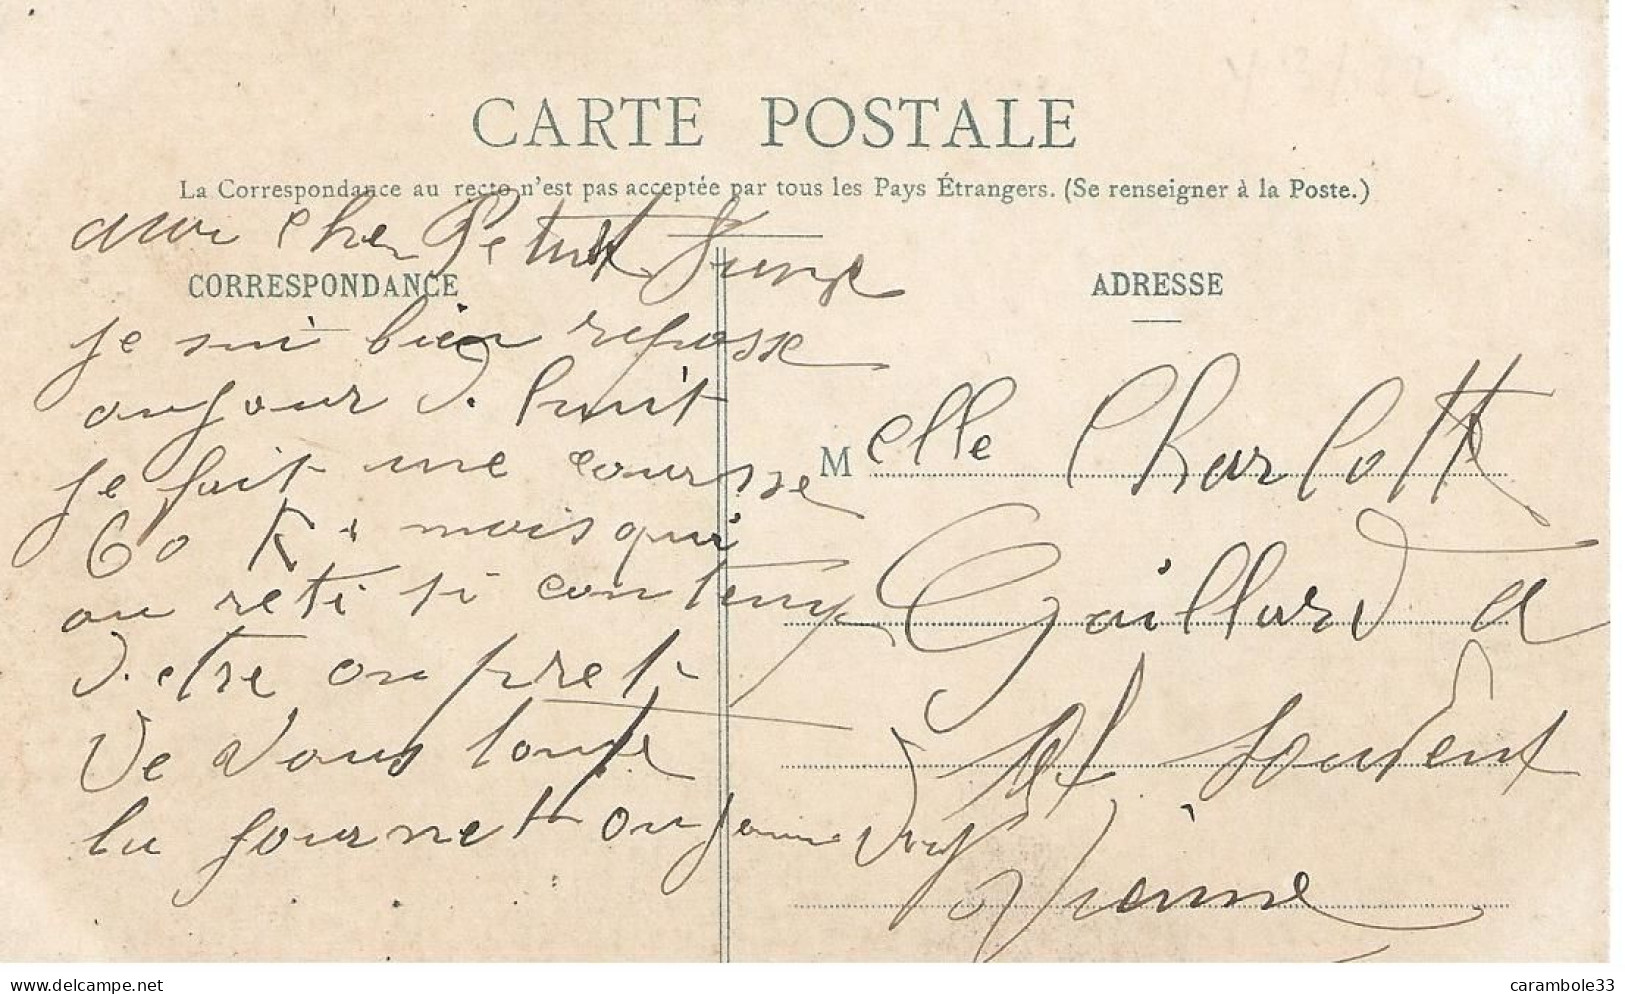 CARTE POSTALE
La Correspondance au recto n'est pas acceptée par tous les Pays Étrangers. (Se renseigner à la Poste.)
cher Petite
CORRESPONDANCE
ADRESSE
je sui bien reposse
aujour d. huit
je fait une coursse
60 K. mais qui
au reti si contemp
d. etre oupret
de vous toute
la journett
Melle Charlotte
Gaillard a
St Soudent
Vienne
delcampe.net
carambole33